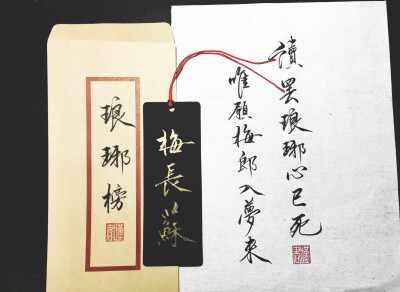 琅琊榜
梅長蘇
讀罷琅琊心已死
唯願梅郎入夢來